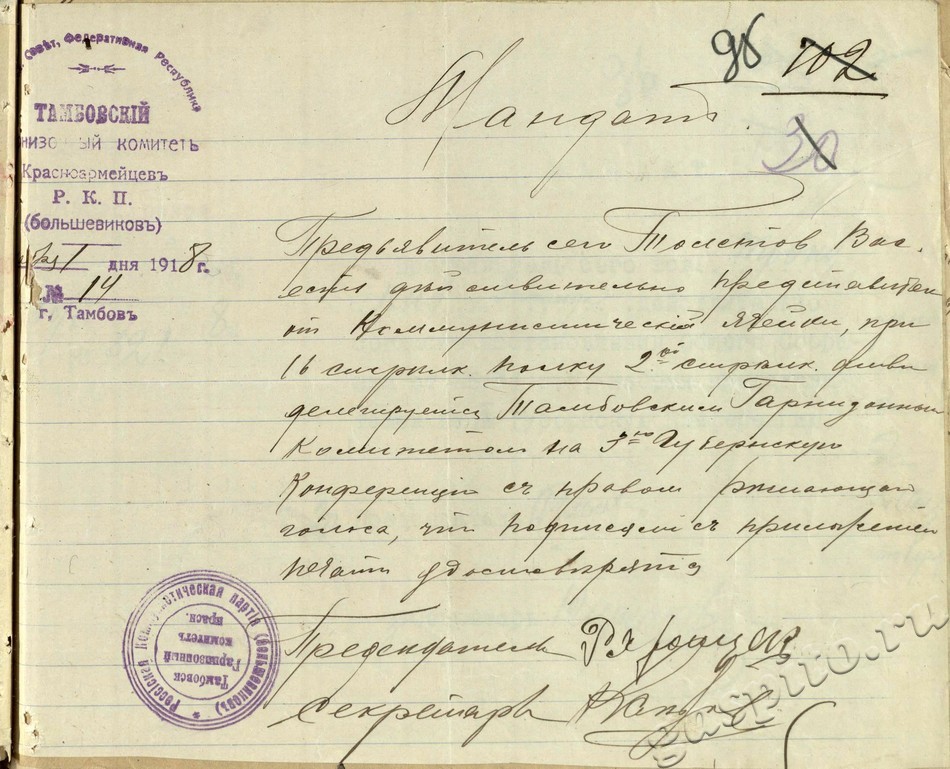 Совѣт. Федеративная Республика
ТАМБОВСКІЙ
комитетъ
Красноармейцевъ
Р. К. П.
(большевиковъ)
дня 1918 г.
№ 14
г. Тамбовъ
96 102
30
Мандатъ.
Предъявитель сего Толстов Вас.
есть дѣйствительно представител
от Коммунистической ячейки, при
16 стрѣлк. полку 2ой стрѣлк. диви
делегируется Тамбовским Гарнизонным
Комитетом на 3ю Губернскую
Конференцію съ правом рѣшающаго
голоса, что подписями съ приложением
печати удостовѣряется
Предсѣдатель
Секретарь
Россійская Коммунистическая партія (большевиковъ)
Тамбовск
Гарнизонный
комитетъ
красн.
gaspito.ru